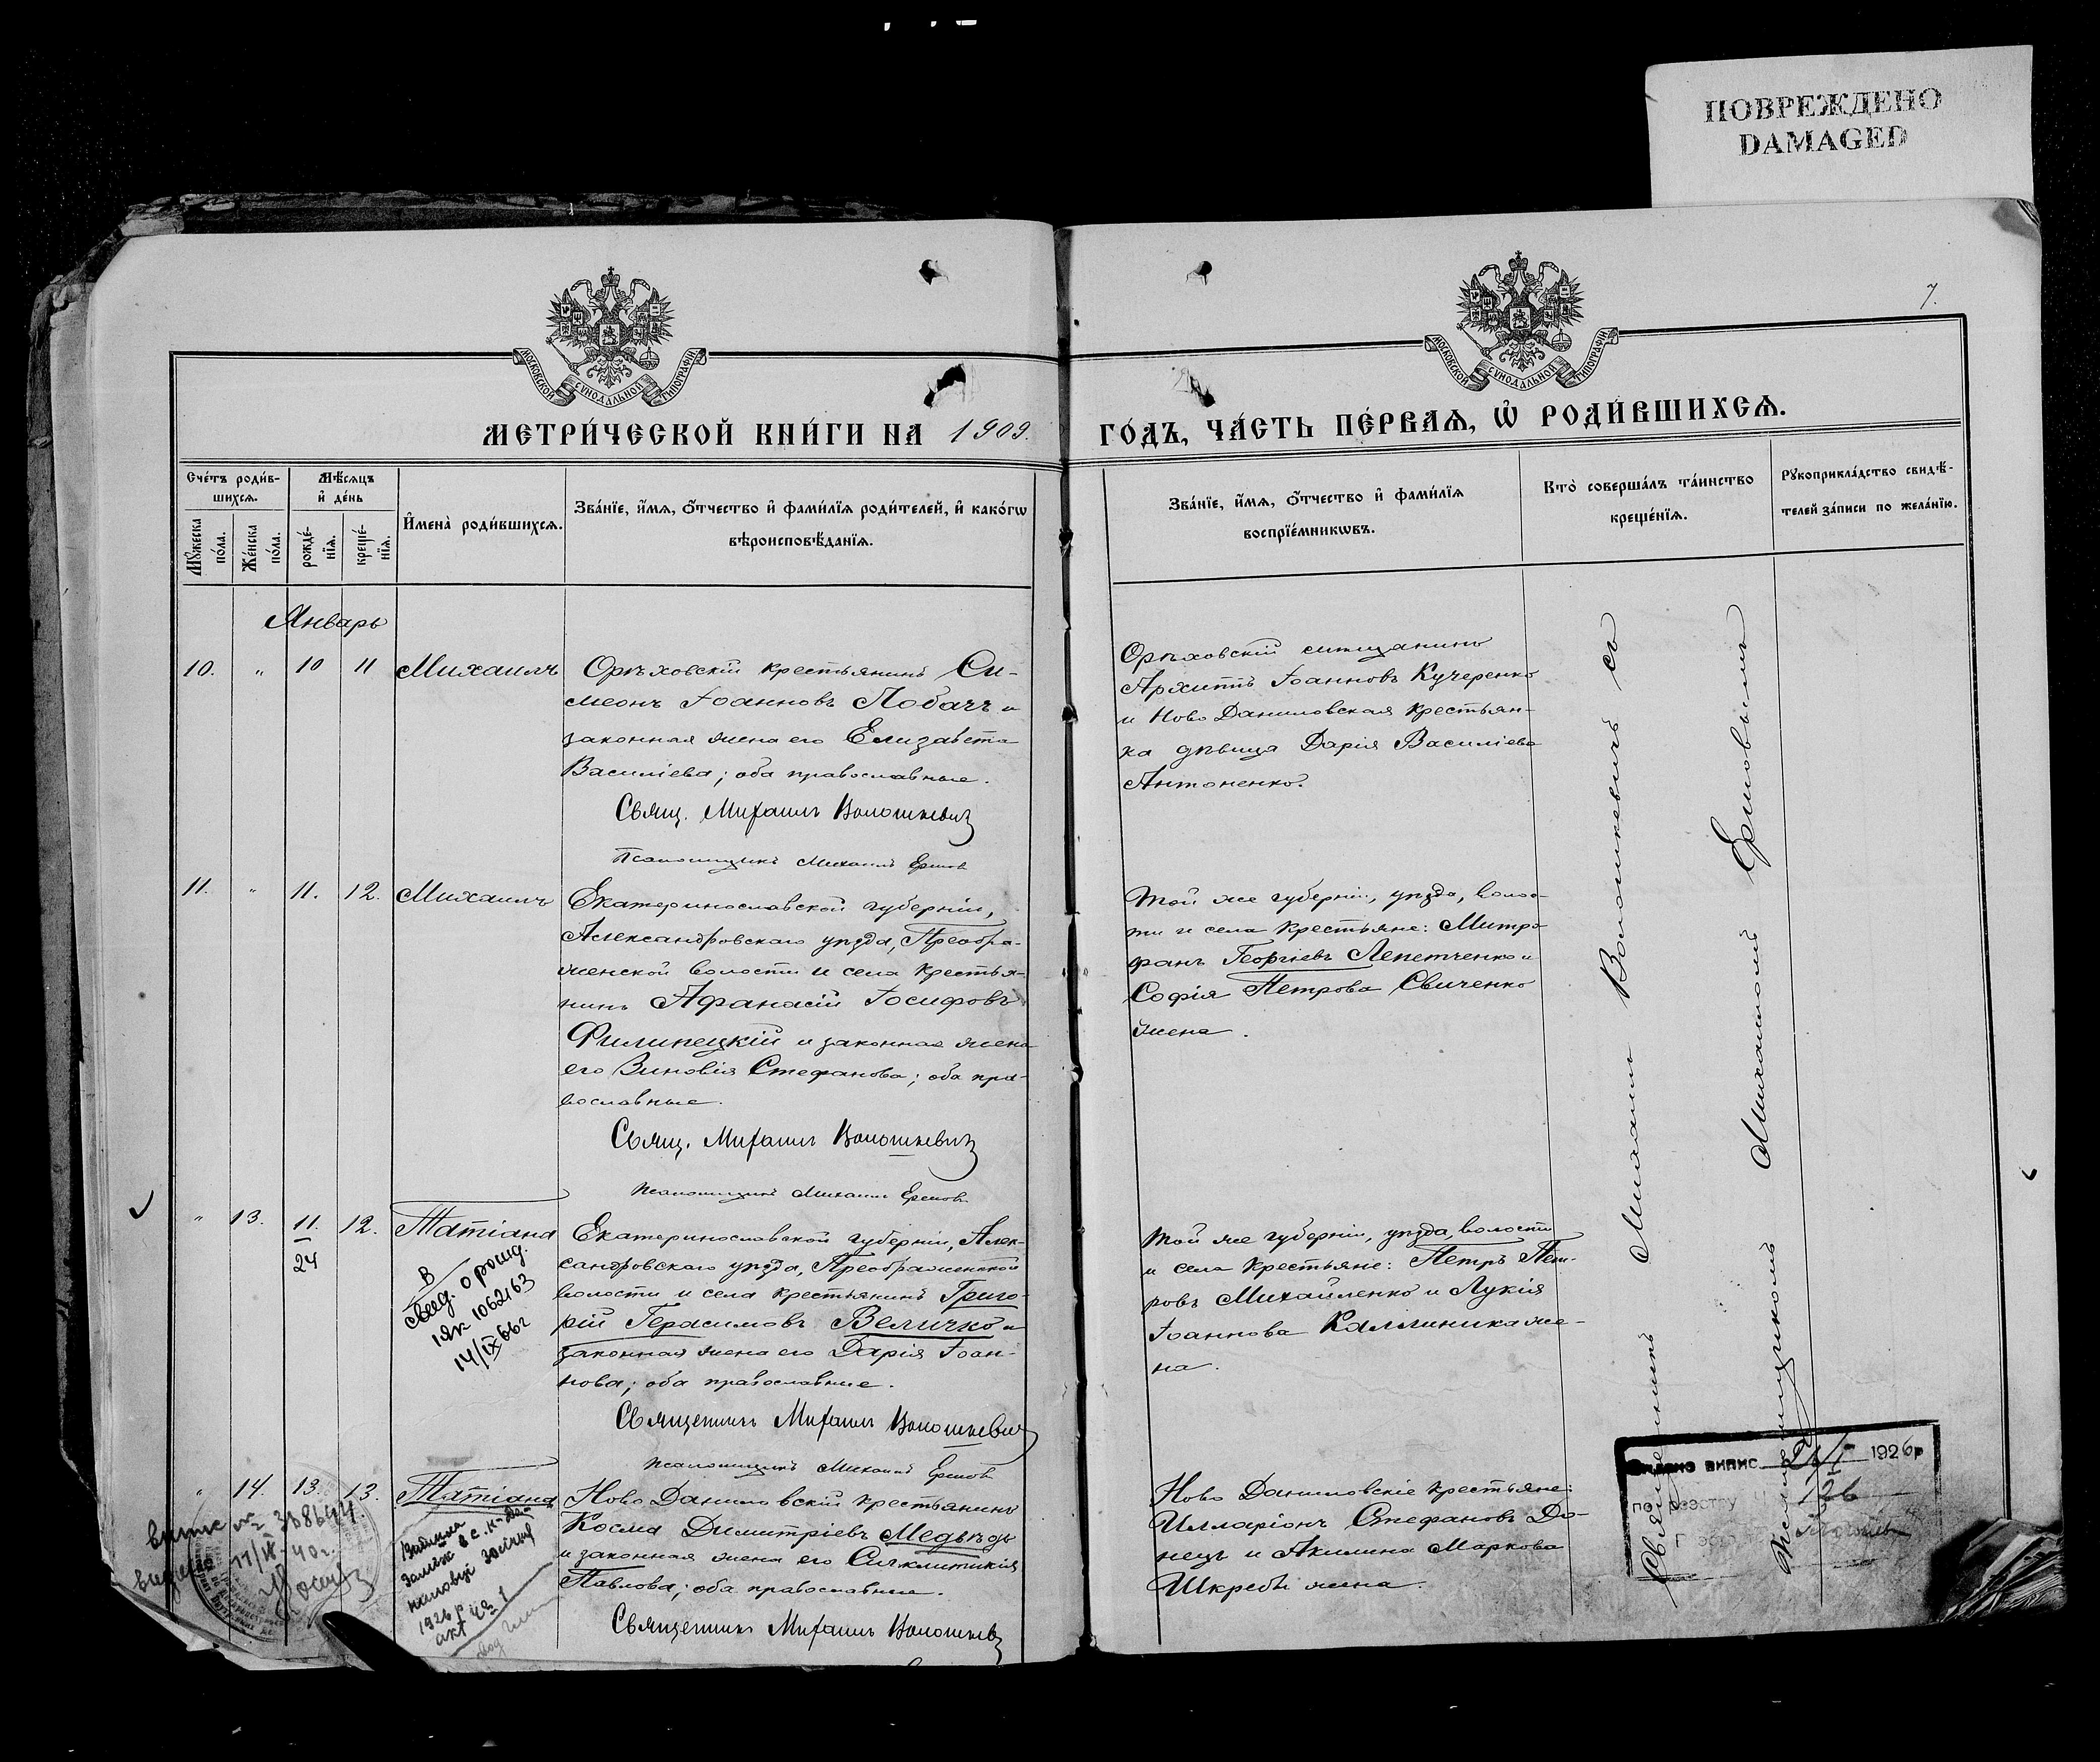 ПОВРЕЖДЕНО
DAMAGED
7.
МОСКОВСКОЙ СУНОДАЛЬНОЙ ТИПОГРАФІИ
МОСКОВСКОЙ СУНОДАЛЬНОЙ ТИПОГРАФІИ
МЕТРИ́ЧЕСКОЙ КНИ́ГИ НА 1909.
ГО́ДЪ, ЧА́СТЬ ПЕ́РВАѦ, Ѿ РОДИ́ВШИХСѦ.
Сче́тъ роди́в-
шихсѧ.
Мꙋ́жеска
по́ла.
Же́нска
по́ла.
Мѣ́сѧцъ
и҆ де́нь
рожде́-
нїѧ.
креще́-
нїѧ.
И҆мена̀ роди́вшихсѧ.
Зва́нїе, и҆́мѧ, ѻ҆́тчество и҆ фами́лїѧ роди́телей, и҆ како́гѡ
вѣроисповѣ́данїѧ.
Зва́нїе, и҆́мѧ, ѻ҆́тчество и҆ фами́лїѧ
воспрїе́мникѡвъ.
Кто̀ соверша́лъ та́инство
креще́нїѧ.
Рꙋкоприкла́дство свидѣ́-
телей за́писи по жела́нїю.
Январь
10. " 10 11 Михаилъ
Орѣховскій крестьянинъ Си-
меонъ Іоанновъ Лобачъ и
законная жена его Елизавета
Василіева; оба православные.
Свящ. Михаилъ Волошкевичъ
Псаломщикъ Михаилъ Ершов
Орѣховскій мѣщанинъ
Архиппъ Іоанновъ Кучеренко
и Ново Даниловская крестьян-
ка дѣвица Дарія Василіева
Антоненко.
11. " 11. 12. Михаилъ
Екатеринославской губерніи,
Александровскаго уѣзда, Преобра-
женской волости и села крестья-
нинъ Афанасій Іосифовъ
Филипецкій и законная жена
его Зиновія Стефанова; оба пра-
вославные.
Свящ. Михаилъ Волошкевичъ
Псаломщикъ Михаилъ Ершовъ
Той же губерніи, уѣзда, волос-
ти и села крестьяне: Митро-
фанъ Георгіевъ Лепетченко и
Софія Петрова Свиченко
жена.
" 13. 11. 12. Татіана
24
В
свед. о рожд.
1ЯК 1062163
14/IX 66г
Екатеринославской губерніи, Алек-
сандровскаго уѣзда, Преображенской
волости и села крестьянинъ Григо-
рій Герасимовъ Величко и
законная жена его Дарія Іоан-
нова; оба православные.
Священникъ Михаилъ Волошкевич
Псаломщикъ Михаилъ Ершов
Той же губерніи, уѣзда, волости
и села крестьяне: Петръ Пет-
ровъ Михайленко и Лукія
Іоаннова Каллиника же-
на.
" 14. 13. 13. Татіана
№ 368644
1926 р.
акт № 1
Ново Даниловскій крестьянинъ
Косма Димитріевъ Медвѣдь
и законная жена его Синклитикія
Павлова; оба православные.
Священникъ Михаилъ Волошкев
Ново Даниловскіе крестьяне:
Илларіонъ Стефановъ До-
нецъ и Акилина Маркова
Шкреба жена.
Священникъ Михаилъ Волошкевичъ съ
Псаломщикомъ Михаиломъ Ершовымъ
Видано випис 1926р
по реєстру